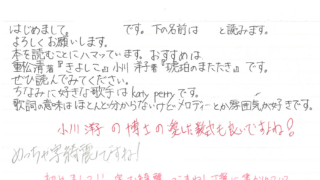 はじめまして。 です。下の名前は と読みます。
よろしくお願いします。
本を読むことにハマッています。おすすめは
重松清著『きよしこ』小川洋子著『琥珀のまたたき』です。
ぜひ読んでみてください。
ちなみに好きな歌手はkaty perryです。
歌詞の意味はほとんど分からないけどメロディーとか雰囲気が好きです。
小川洋子の博士の愛した数式も良いですよね!
めっちゃ字綺麗ですね!